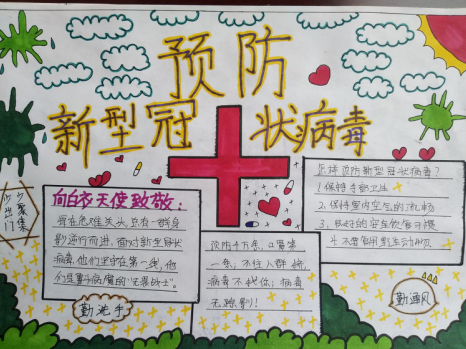 预防
新型冠状病毒
少出门
少聚集
向白衣天使致敬：
每在危难关头，总有一线身
影逆行而进，面对新型冠状
病毒，他们坚守在第一线，他
们是与病魔的“无畏战士”。
勤洗手
预防千万条，口罩第
一条，不往人群挤，
病毒不找你；病毒
无踪影！
怎样预防新型冠状病毒？
1.保持手部卫生
2.保持室内空气的流畅
3.良好的安全饮食习惯
4.不要食用野生动物
勤通风